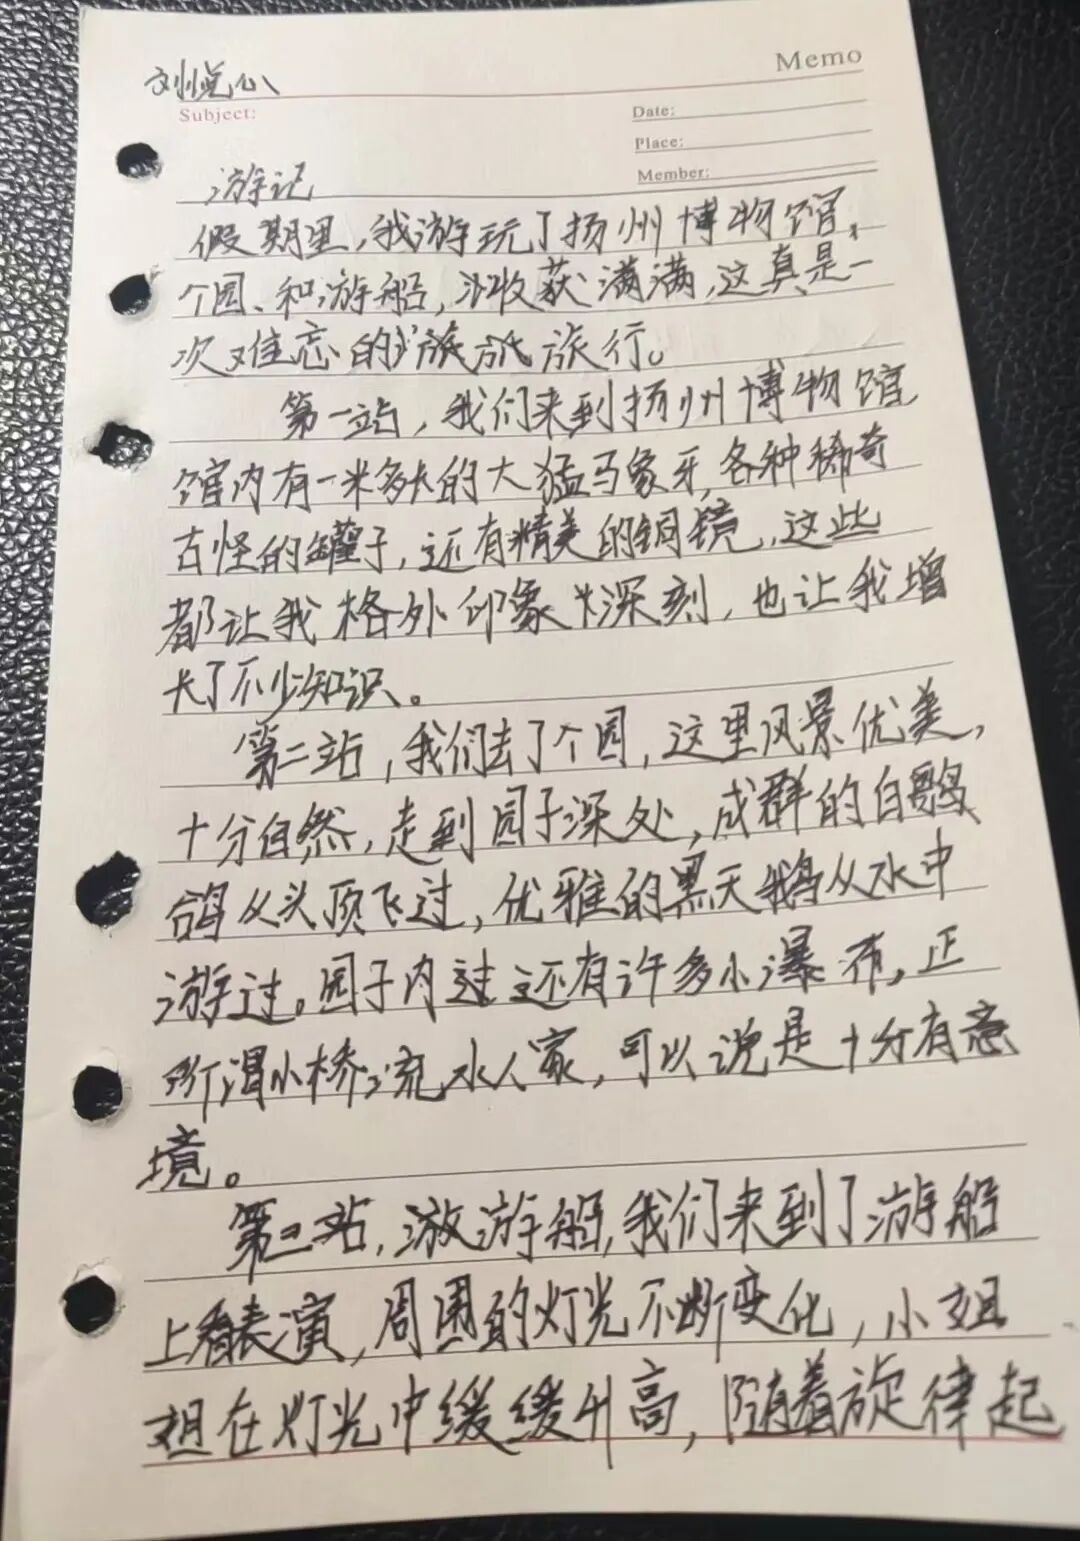 Memo
刘悦心
Subject:
Date:
Place:
Member:
游记
假期里,我游玩了扬州博物馆,
个园、和游船,收获满满,这真是一
次难忘的旅行。
第一站,我们来到扬州博物馆
馆内有一米多长的大猛马象牙,各种稀奇
古怪的罐子,还有精美的铜镜,这些
都让我格外印象深刻,也让我增
长了不少知识。
第二站,我们去了个园,这里风景优美,
十分自然,走到园子深处,成群的白
鸽从头顶飞过,优雅的黑天鹅从水中
游过。园子内还有许多小瀑布,正
所谓小桥流水人家,可以说是十分有意
境。
第三站,游船,我们来到了游船
上看表演,周围的灯光不断变化,小姐
姐在灯光中缓缓升高,随着旋律起